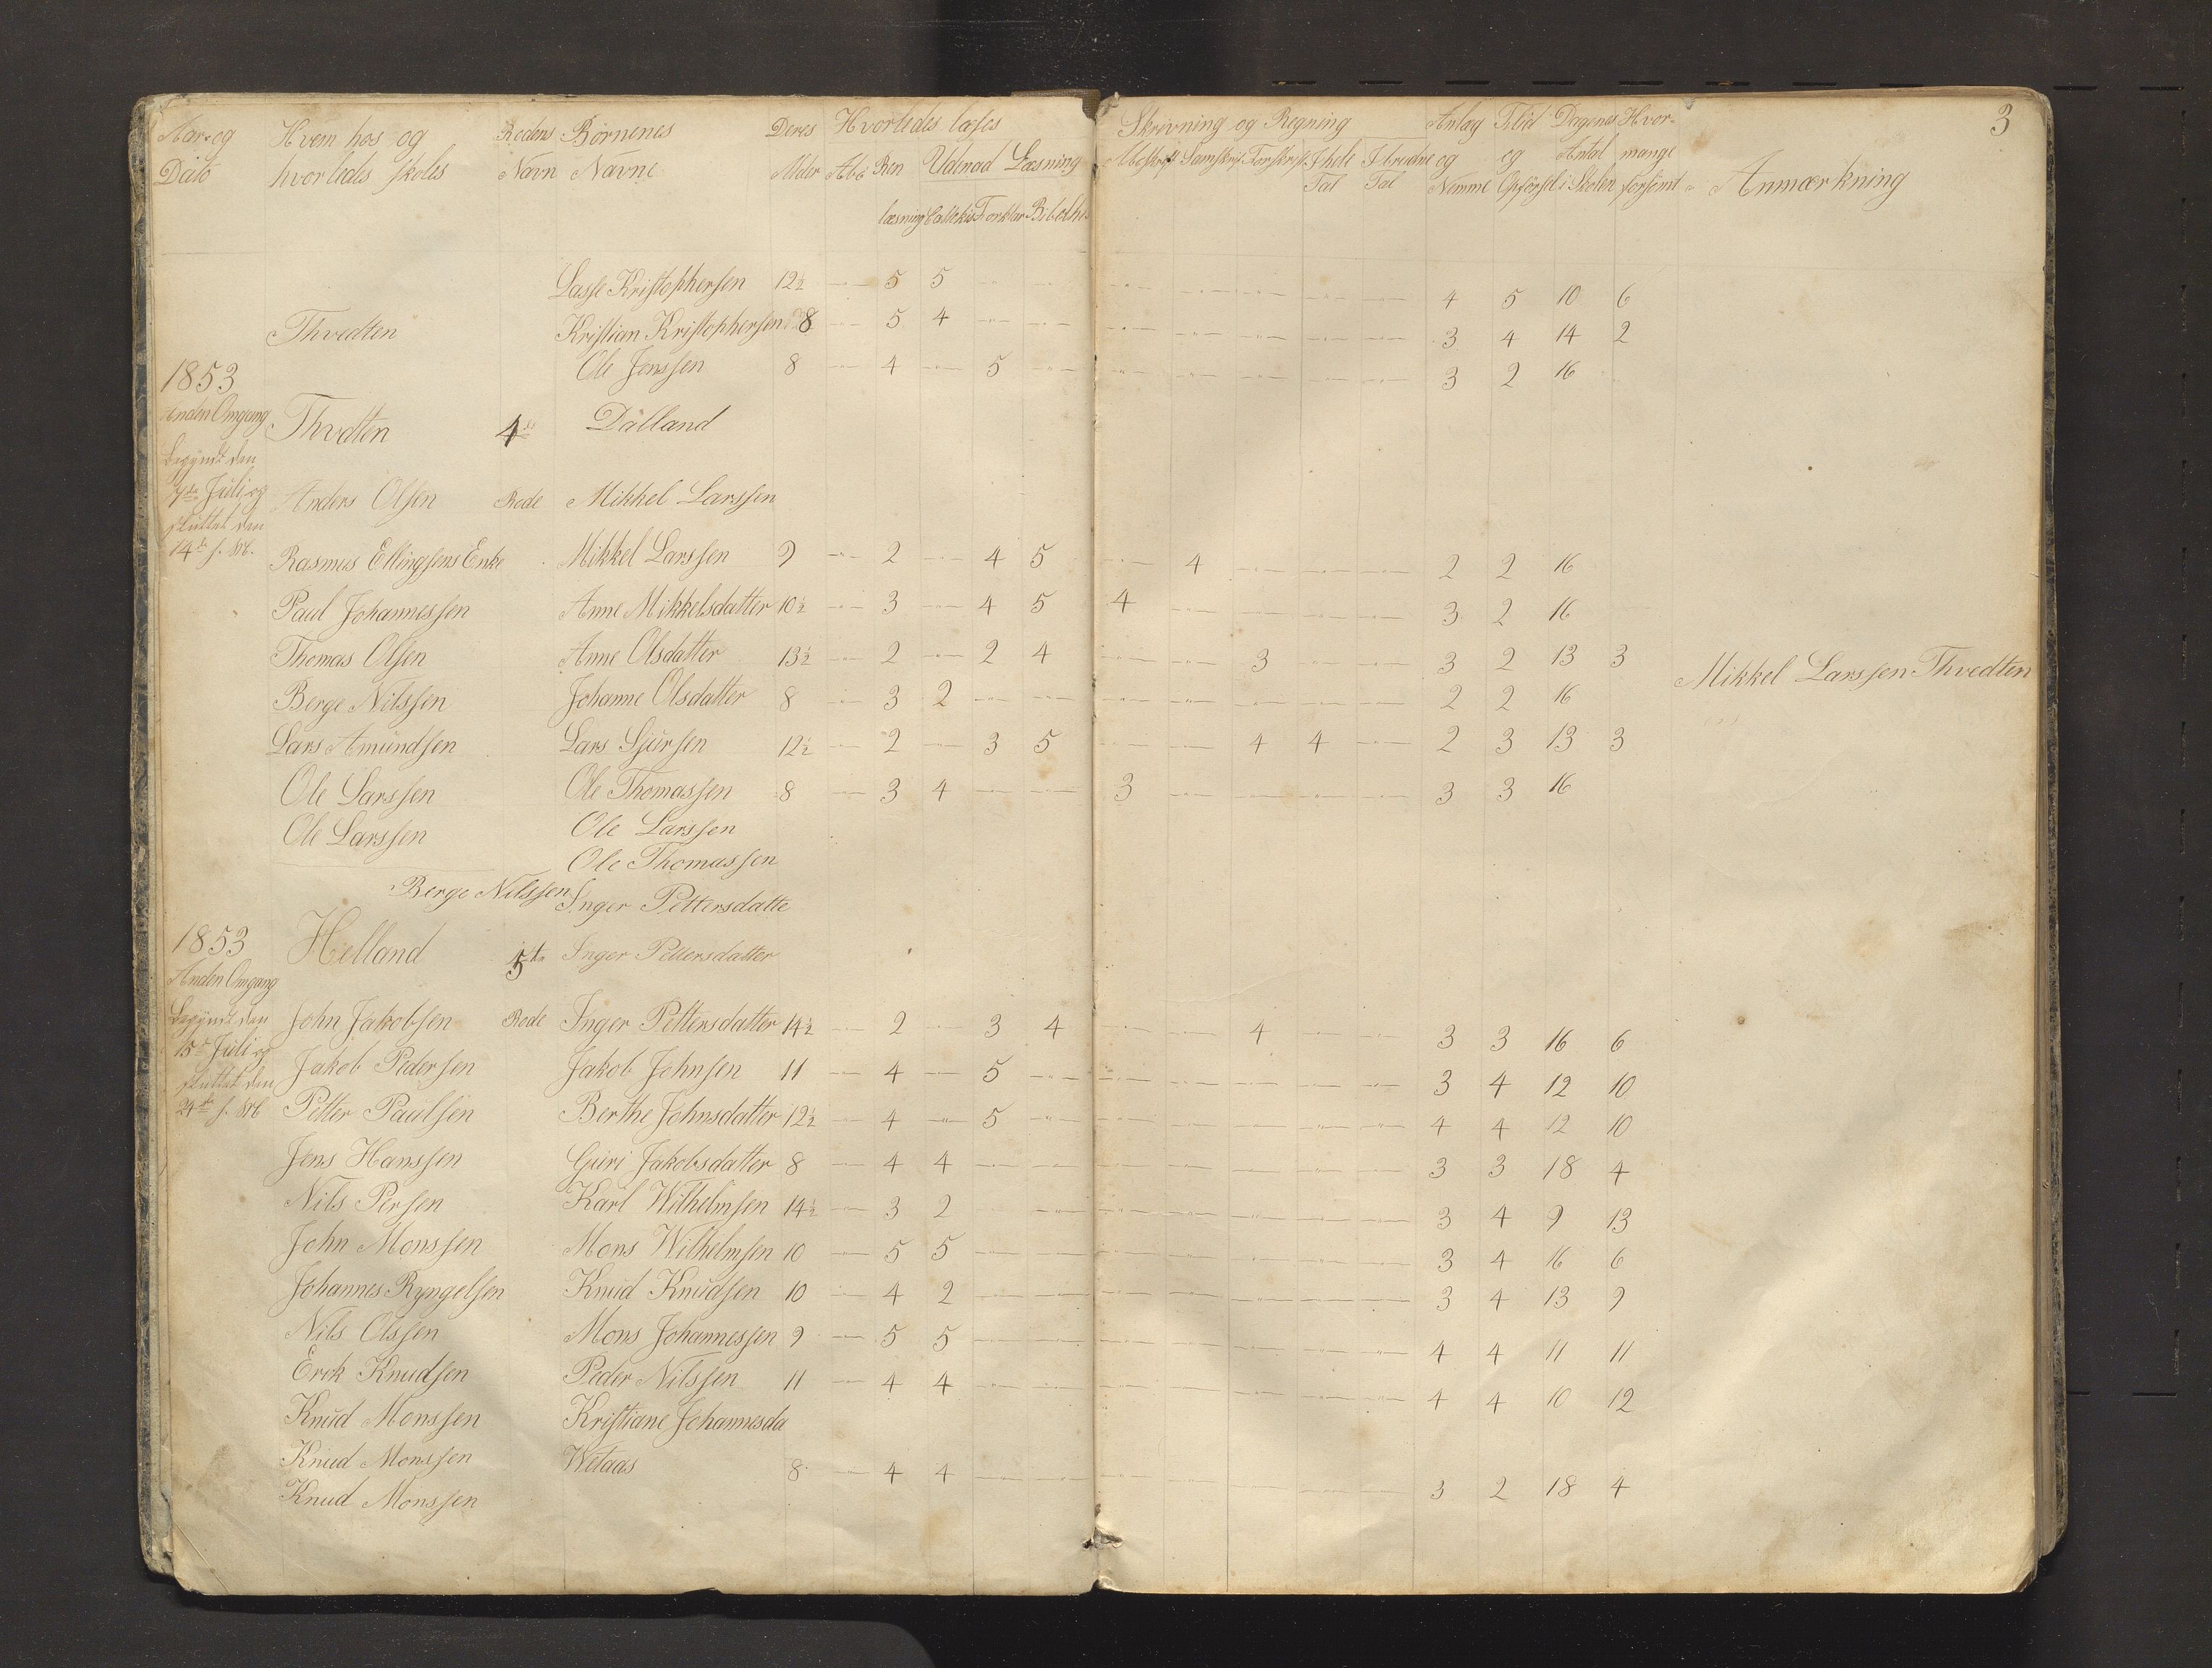 3
Aar og Hvem hos og Rodens Börnenes Deres Hvorledes læses Skrivning og Regning Anlæg Flid Dagenes Hvor-
Dato hvorledes skoles Navn Navne Alder Abc Ren Udenad Læsning Samskrif. Forskrif. I hele I brudne og og Antal mange
læsning Forklar Tal Tal Nemme Opförsel i Skolen forsömt Anmærkning
Lasse Kristophersen 12½ 5 5 4 5 10 6
Thvedten Kristian Kristophersen 8 5 4 3 4 14 2
Ole Jonssen 8 4 5 3 2 16
1853
Anden Omgang Thvedten 4de Dalland
begyndt den
7de Juli og Anders Olsen Rode Mikkel Larssen
sluttet den
14de s. M. Rasmus Ellingsens Enke Mikkel Larssen 9 2 4 5 4 2 2 16
Paul Johannessen Anne Mikkelsdatter 10½ 3 4 5 4 3 2 16
Thomas Olsen Anne Olsdatter 13½ 2 2 4 3 3 2 13 3 Mikkel Larssen Thvedten
Berge Nilssen Johanne Olsdatter 8 3 2 2 2 16
Lars Amundsen Lars Sjursen 12½ 2 3 5 4 4 2 3 13 3
Ole Larssen Ole Thomassen 8 3 4 3 3 3 16
Ole Larssen Ole Larssen
Ole Thomassen
Berge Nilssen Inger Pettersdatte
1853 Helland 5te Inger Pettersdatter
Anden Omgang
begyndt den John Jakobsen Rode Inger Pettersdatter 14½ 2 3 4 4 3 3 16 6
15de Juli og
sluttet den Jakob Pedersen Jakob Johnsen 11 4 5 3 4 12 10
s. M Petter Paulsen Berthe Johnsdatter 12½ 4 5 4 4 12 10
Jens Hanssen Guri Jakobsdatter 8 4 4 3 3 18 4
Nils Persen Karl Wilhelmsen 14½ 3 2 3 4 9 13
John Monssen Mons Wilhelmsen 10 5 5 3 4 16 6
Johannes Ryngelsen Knud Knudsen 10 4 2 3 4 13 9
Nils Olssen Mons Johannessen 9 5 5 4 4 11 11
Erek Knudsen Peder Nilssen 11 4 4 4 4 10 12
Knud Monssen Kristiane Johannesda
Knud Monssen Wetaas 8 4 4 3 2 18 4
Knud Monssen